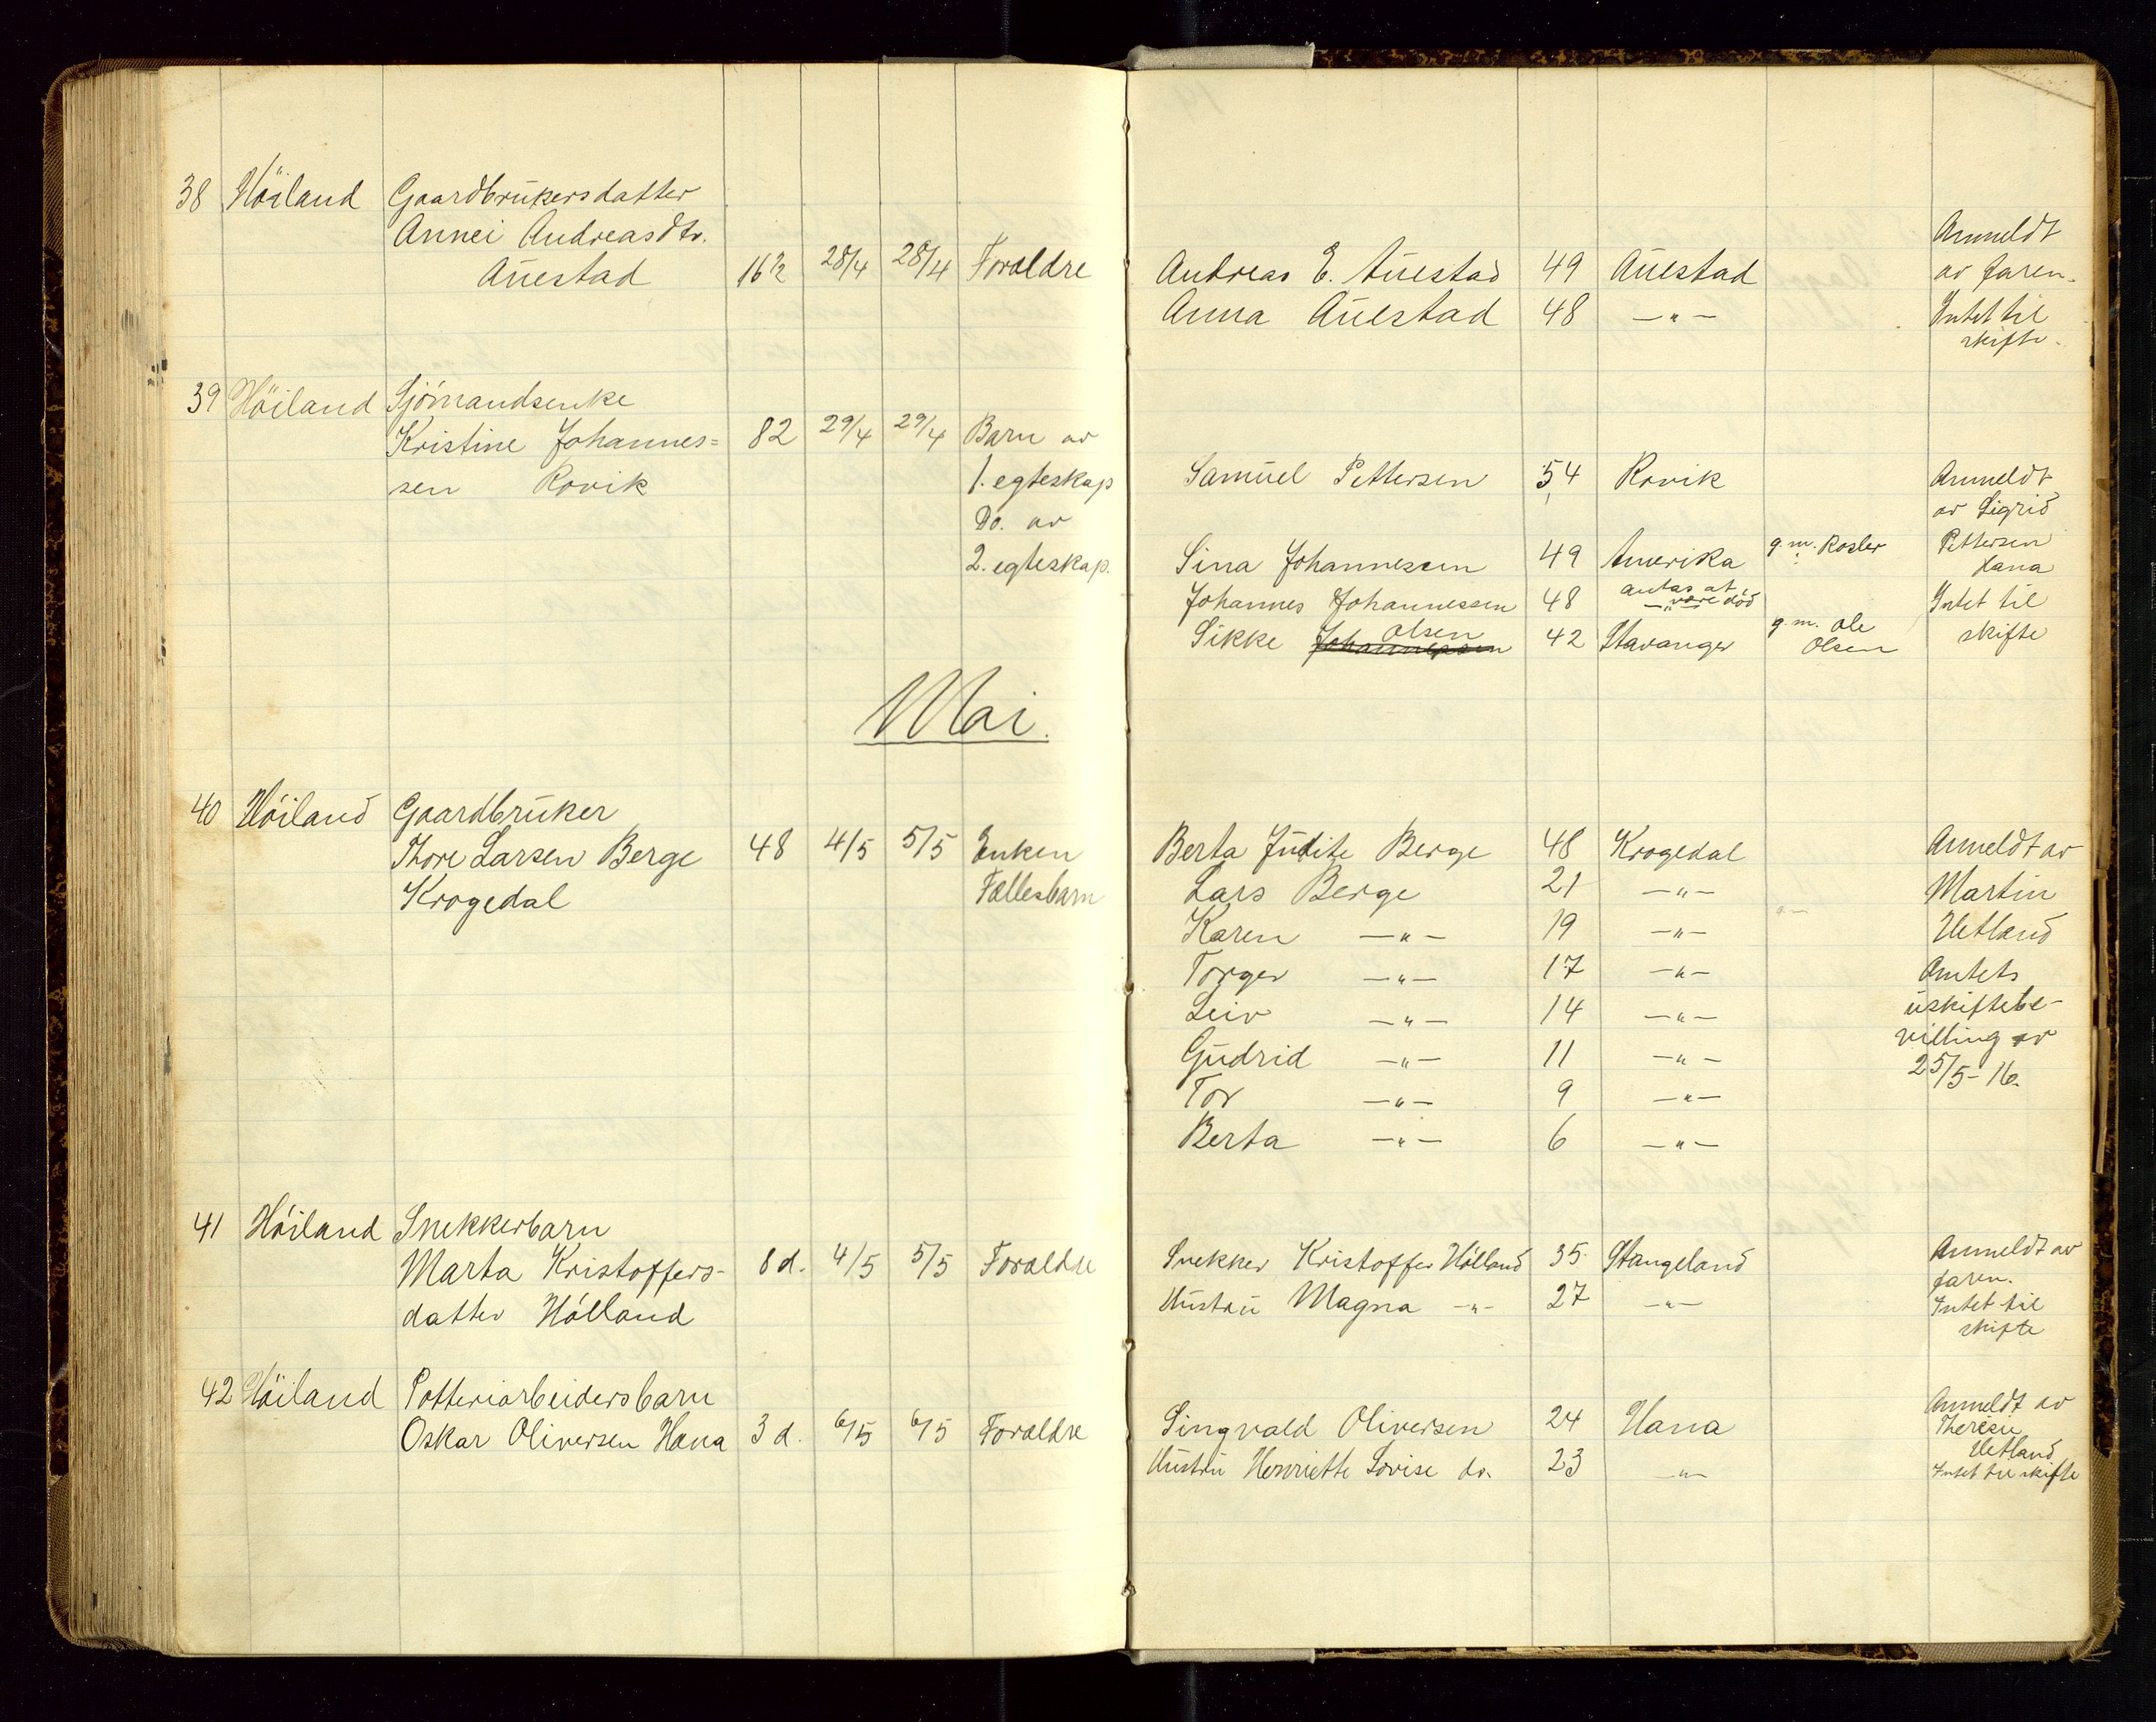 38 Höiland Gaardbrükersdatter
Annei Andreasdtr.
Aüestad 16½ 28/4 28/4 Foraldre
Andreas E. Aüestad 49 Aüestad
Anna Aüestad 48 —"—
Anmeldt
av faren.
Intet til
skifte.
39 Höiland Sjömandsenke
Kristine Johannes= 82 29/4 29/4 Barn av
sen Rovik 1. egteskap
Do. av
2. egteskap.
Samüel Pettersen 54 Rovik
Sina Johannessen 49 Amerika g.m. Rosler
Johannes Johannessen 48 antas at
—"— være död
Sikke Johannessen Olsen 42 Stavanger g.m. Ole
Olsen
Anmeldt
av Sigrid
Pettersen
Hana
Intet til
skifte
Mai.
40 Höiland Gaardbrüker
Thore Larsen Berge 48 4/5 5/5 Enken
Krogedal Fællesbarn
Berta Jüdite Berge 48 Krogedal
Lars Berge 21 —"—
Karen —"— 19 —"—
Torger —"— 17 —"—
Leiv —"— 14 —"—
Güdrid —"— 11 —"—
Tor —"— 9 —"—
Berta —"— 6 —"—
Anmeldt av
Martin
Uetland
Amtets
üskiftebe-
villing av
25/5-16.
41 Höiland Snekkerbarn
Marta Kristoffers- 8 d. 4/5 5/5 Foraldre
datter Hölland
Snekker Kristoffer Hölland 35 Stangeland
Hüstrü Magna —"— 27 —"—
Anmeldt av
faren.
Intet til
skifte
42 Höiland Potteriarbeidersbarn
Oskar Oliversen Hana 3 d. 6/5 6/5 Foraldre
Singvald Oliversen 24 Hana
Hüstrü Henriette Lovise do. 23 —"—
Anmeldt av
Therésie
Uetland
Intet til skifte